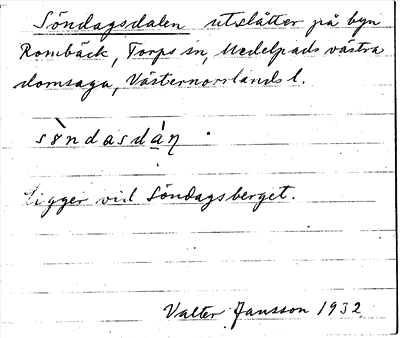 Söndagsdalen utslåtter på byn
Rombäck, Torps sn, Medelpads västra
domsaga, Västernorrlands l.
sö̀ndasdàn.
Ligger vid Söndagsberget.
Valter Jansson 1932